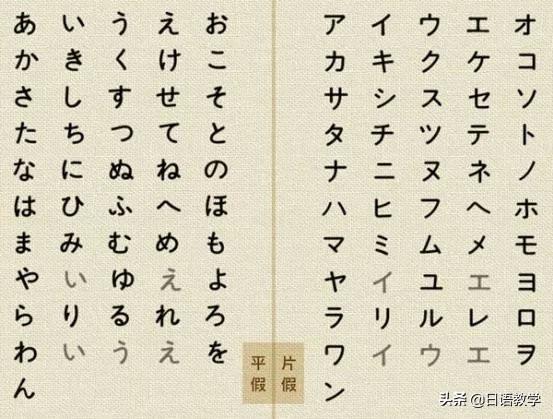 あ い う え お
か き く け こ
さ し す せ そ
た ち つ て と
な に ぬ ね の
は ひ ふ へ ほ
ま み む め も
や い ゆ え よ
ら り る れ ろ
わ い う え を
ん
平假
ア イ ウ エ オ
カ キ ク ケ コ
サ シ ス セ ソ
タ チ ツ テ ト
ナ ニ ヌ ネ ノ
ハ ヒ フ ヘ ホ
マ ミ ム メ モ
ヤ イ ユ エ ヨ
ラ リ ル レ ロ
ワ イ ウ エ ヲ
ン
片假
头条 @日语教学